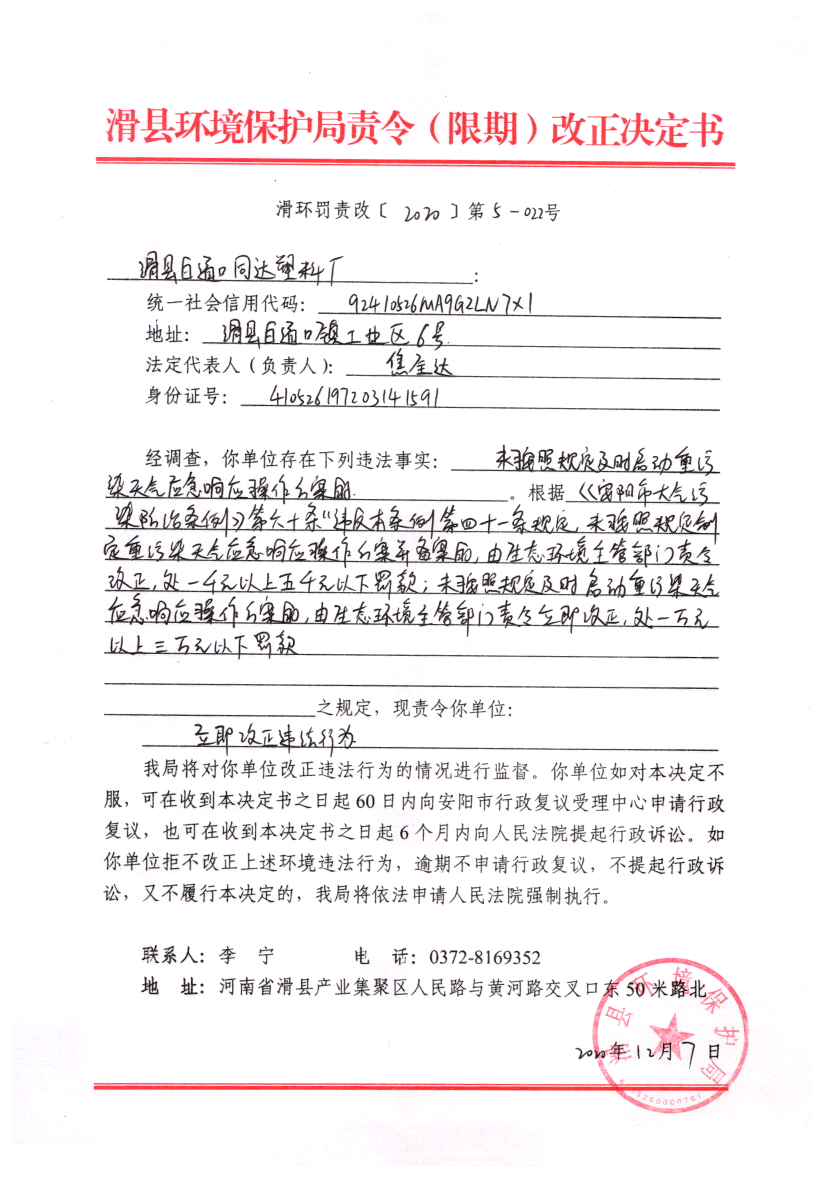 滑县环境保护局责令（限期）改正决定书
滑环罚责改〔 2020 〕第 5 -022号
滑县白道口同达塑料厂 ：
统一社会信用代码： 92410526MA9G2LN7X1
地址： 滑县白道口镇工业区6号
法定代表人（负责人）： 焦全达
身份证号： 410526197203141591
经调查，你单位存在下列违法事实： 未按照规定及时启动重污
染天气应急响应操作方案的 。根据《安阳市大气污
染防治条例》第六十条“违反本条例第四十一条规定，未按照规定制
定重污染天气应急响应操作方案并备案的，由生态环境主管部门责令
改正，处一千元以上五千元以下罚款；未按照规定及时启动重污染天气
应急响应操作方案的，由生态环境主管部门责令立即改正，处一万元
以上三万元以下罚款
之规定，现责令你单位：
立即改正违法行为
我局将对你单位改正违法行为的情况进行监督。你单位如对本决定不
服，可在收到本决定书之日起 60 日内向安阳市行政复议受理中心申请行政
复议，也可在收到本决定书之日起 6 个月内向人民法院提起行政诉讼。如
你单位拒不改正上述环境违法行为，逾期不申请行政复议，不提起行政诉
讼，又不履行本决定的，我局将依法申请人民法院强制执行。
联系人：李 宁 电 话：0372-8169352
地 址：河南省滑县产业集聚区人民路与黄河路交叉口东 50 米路北
滑县环境保护局
2020年12月7日